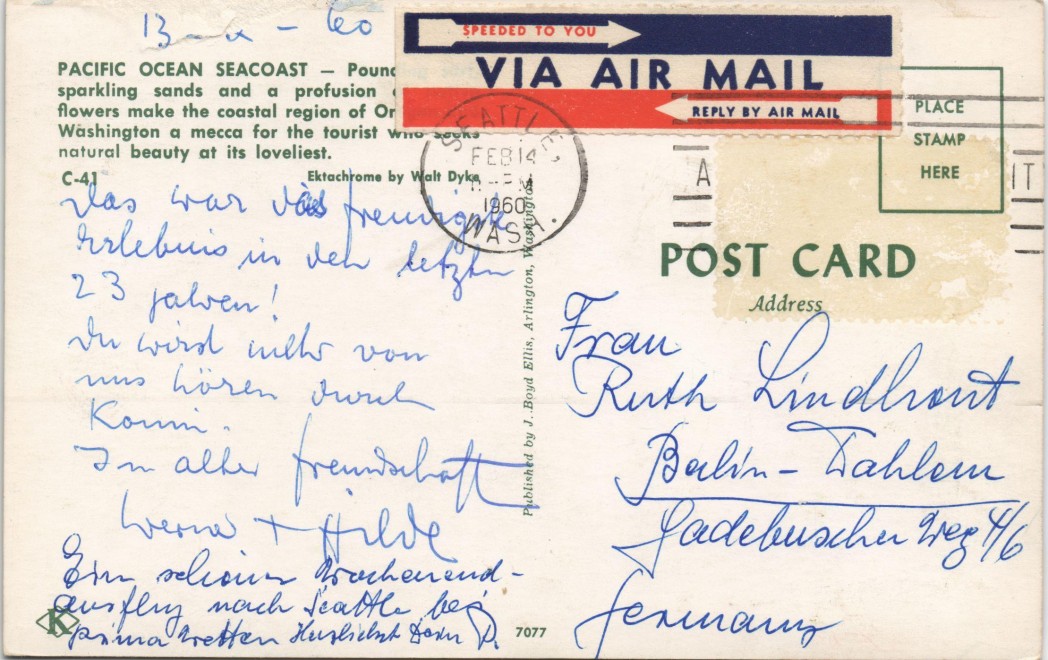 13 - - 60
PACIFIC OCEAN SEACOAST — Poun
sparkling sands and a profusion
flowers make the coastal region of Or
Washington a mecca for the tourist who seeks
natural beauty at its loveliest.
C-41
Ektachrome by Walt Dyke
Das war das freudigste
Erlebnis in den letzten
23 Jahren!
Du wirst mehr von
uns hören durch
In alter Freundschaft
Werner + Hilde
Ein schöner Wochenend-
ausflug nach Seattle bei
prima Wetter. Herzlichst Dein
K
7077
Published by J. Boyd Ellis, Arlington, Washington
SPEEDED TO YOU
VIA AIR MAIL
REPLY BY AIR MAIL
SEATTLE,
FEB 14
PM
1960
WASH.
PLACE
STAMP
HERE
A
IT
POST CARD
Address
Frau
Ruth Lindhorst
Berlin-Dahlem
Gadebuscher Weg 4/6
Germany